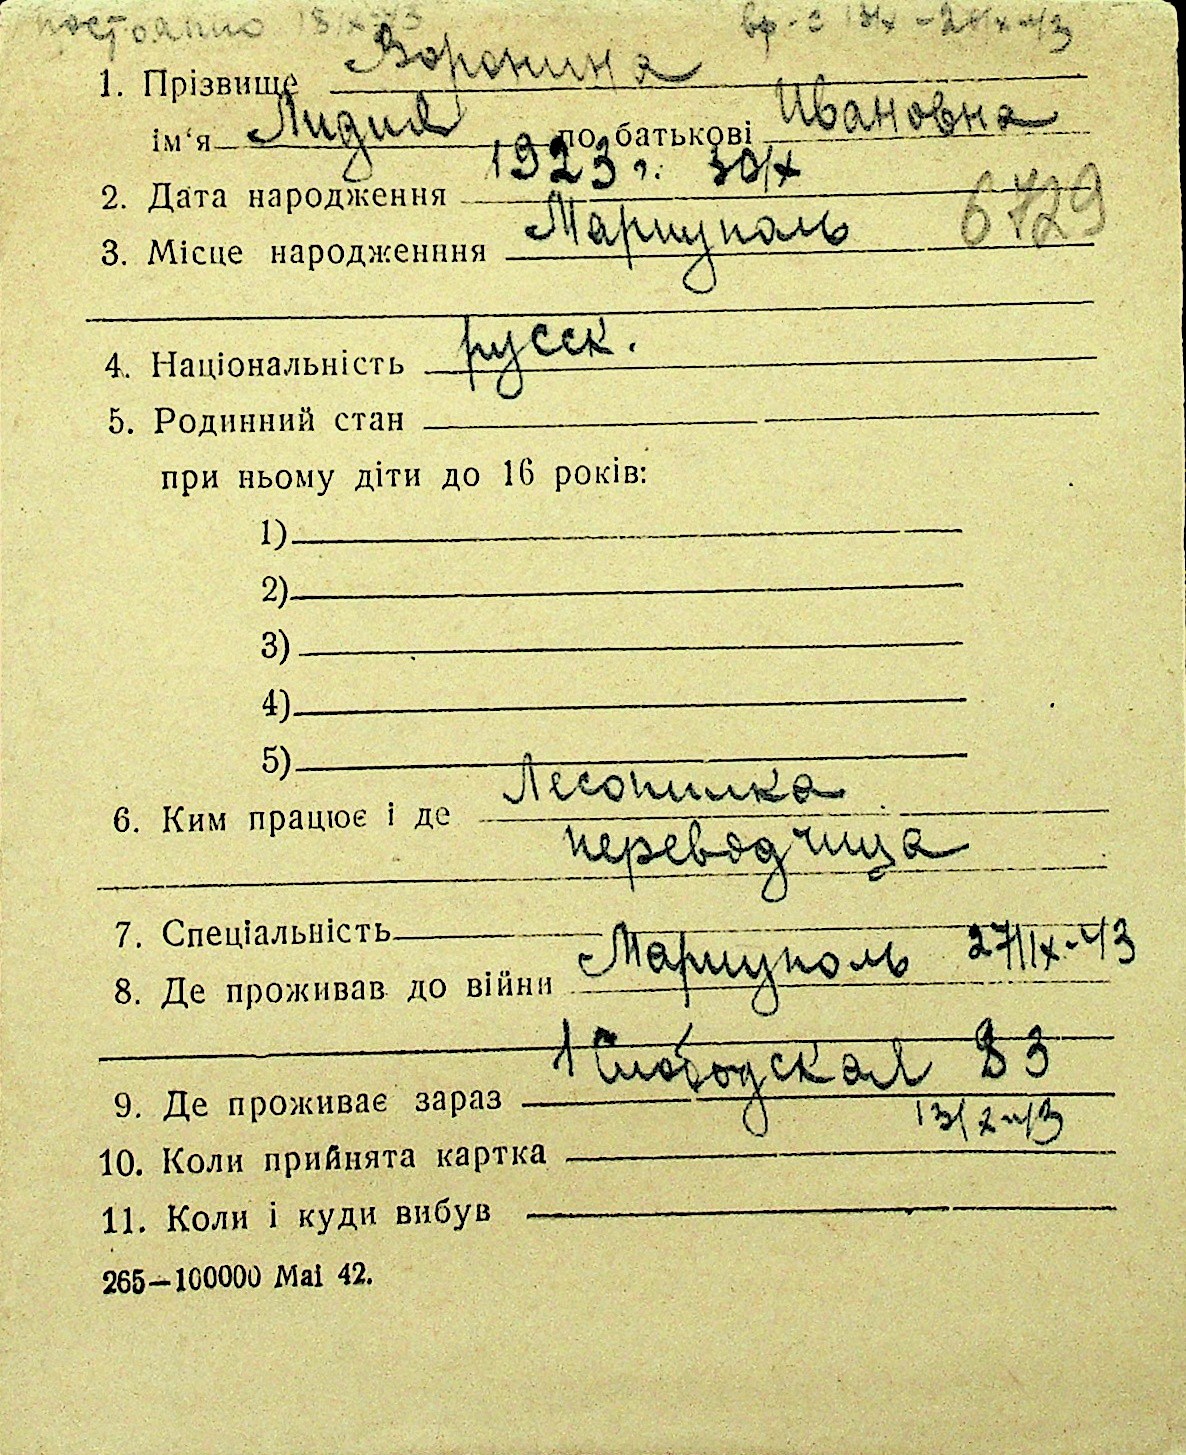 постоянно 13/X-43 вр. с 13/X - 
1. Прізвище Воронина
ім‘я Лидия по батькові Ивановна
2. Дата народження 1923 г. 30/X
6729
3. Місце народженння Мариуполь
4. Національність русск.
5. Родинний стан
при ньому діти до 16 років:
1)
2)
3)
4)
5)
6. Ким працює і де Лесопилка
переводчица
7. Спеціальність
8. Де проживав до війни Мариуполь 27/IX-43
9. Де проживає зараз 1 Слободская 83
10. Коли прийнята картка 13/X-43
11. Коли і куди вибув
265—100000 Mai 42.